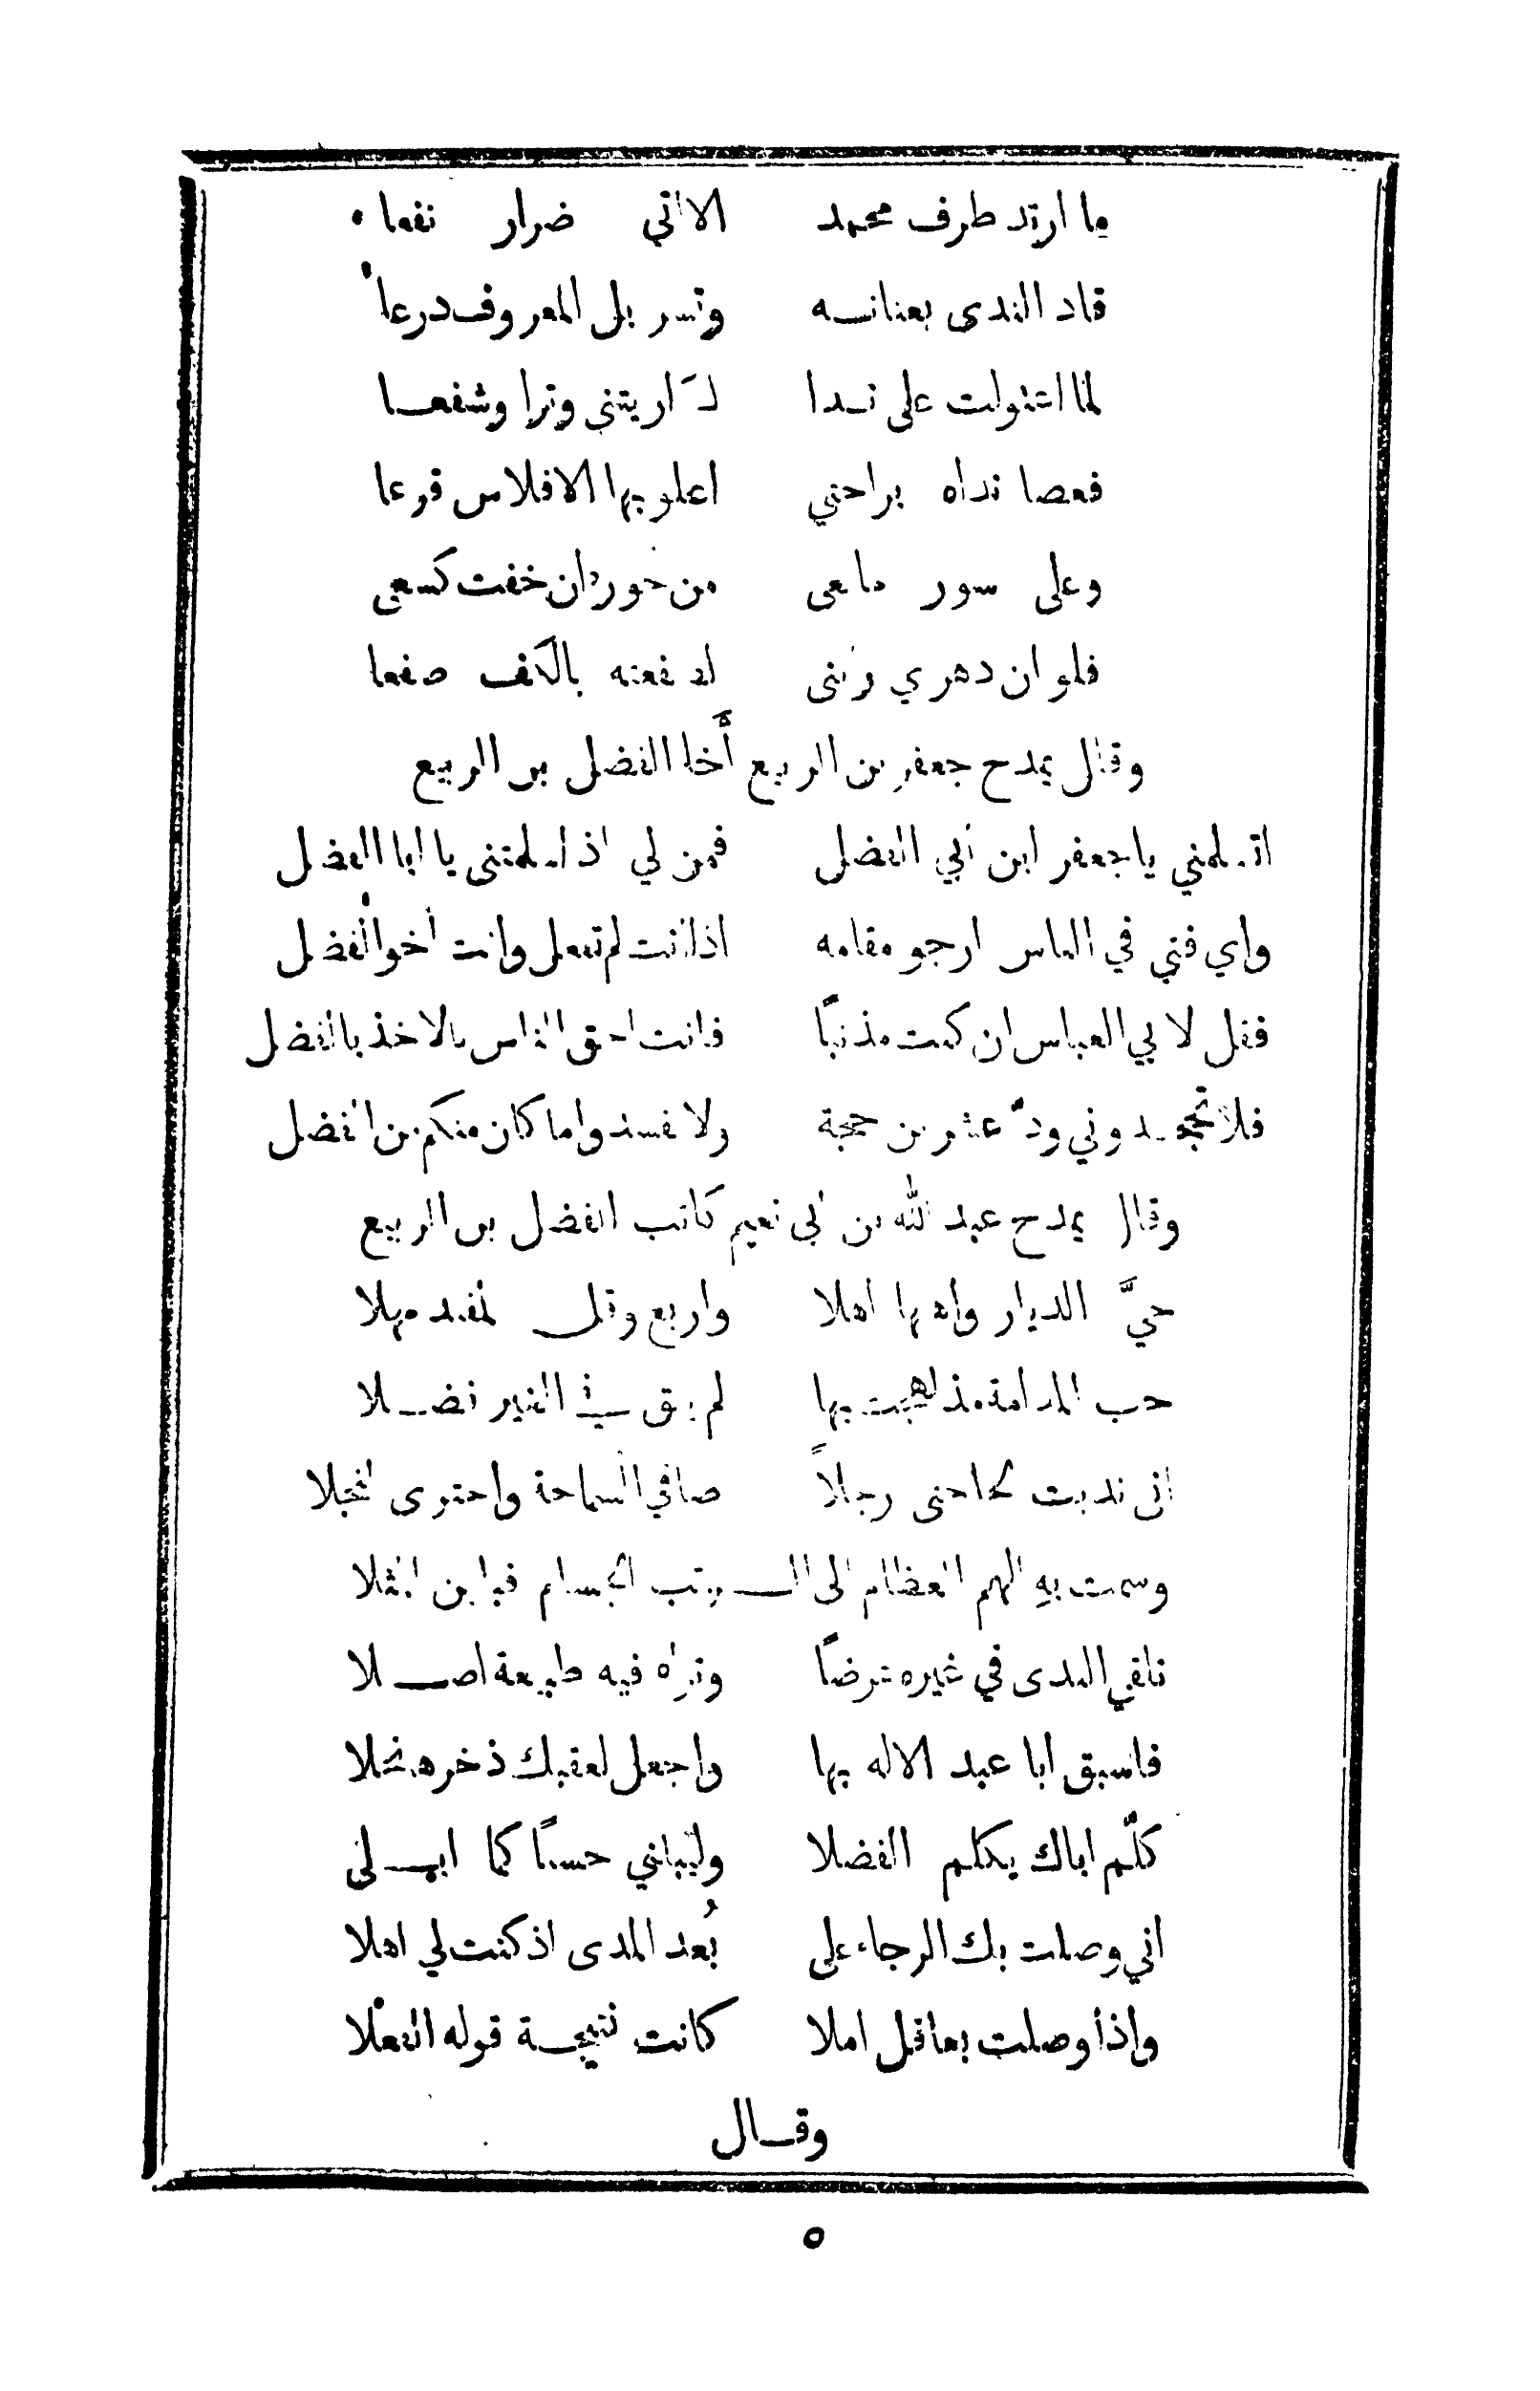 ما ارتد طرف محمد الا اتى ضرار نفعا
قاد الندى بعنانــه وتسربل المعروف درعا
لما اعتولت على نــدا ك ار يتنى وترا وشفعــا
فعصا نداه براحتي اعلو بها الافلاس قرعا
وعلى سور مانعى من جوره ان خفت كسعى
فلو ان دهري رابنى لصفعته بالكف صفعا
وقال يمدح جعفر بن الربيع أخا الفضل بن الربيع
اتسلمني يا جعفر ابن ابي الفضل فمن لي اذا اسلمتنى يا ابا الفضل
واي فتى في الناس ارجو مقامه اذا انت لم تفعل وانت اخو الفضل
فقل لابي العباس ان كنت مذنبًا فانت احق الناس بالاخذ بالفضل
فلا تجحدوني ودّ عشرين حجة ولا تفسدوا ما كان منكم من الفضل
وقال يمدح عبد الله بن ابى نعيم كاتب الفضل بن الربيع
حيّ الديار واهلها اهلا واربع وقل لمفند مهلا
حب المدامة مذ لهجت بها لم يبق في لغير فضــلا
انى ندبت لحاجتى رجلاً صافي السماحة واحتوى النجلا
وسمت بهِ الهمم العظام الى الــرتب الجسام فباين المثلا
تلقى الندى في غيره عرضًا وتراه فيه طبيعة اصــلا
فاسبق ابا عبد الاله بها واجعل لعقبك ذخرها نحلا
كلّم اباك يكلم الفضلا وليبلني حسنًا كما ابــلى
اني وصلت بك الرجاء على بُعد المدى اذ كنت لي اهلا
واذا وصلت بعاقل املا كانت نتيجــة قوله الفعلا
وقــال
٥